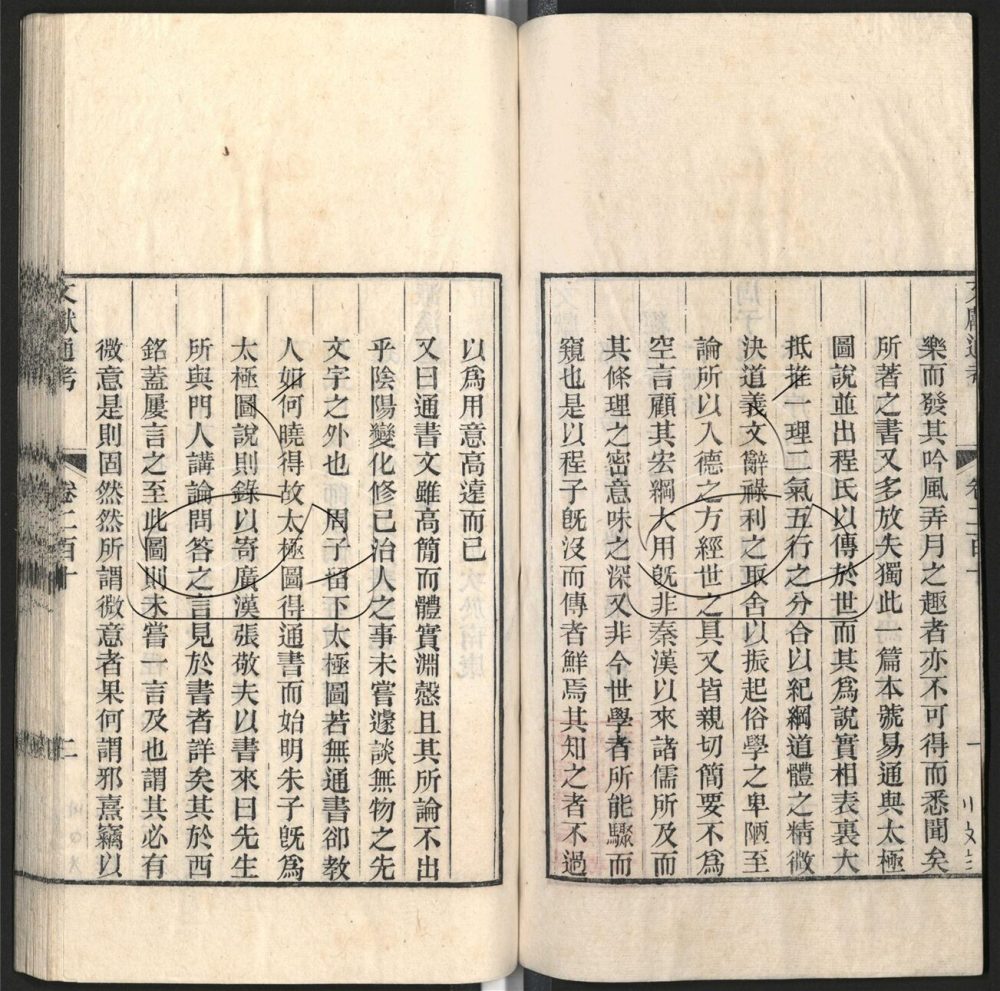 樂而發其吟風弄月之趣者亦不可得而悉聞矣
所著之書又多放失獨此一篇本號易通與太極
圖說並出程氏以傳於世而其爲說實相表裏大
抵推一理二氣五行之分合以紀綱道體之精微
決道義文辭祿利之取舍以振起俗學之卑陋至
論所以入德之方經世之具又皆親切簡要不爲
空言顧其宏綱大用旣非秦漢以來諸儒所及而
其條理之密意味之深又非今世學者所能驟而
窺也是以程子旣沒而傳者鮮焉其知之者不過
以爲用意高遠而已
又曰通書文雖高簡而體實淵慤且其所論不出
乎陰陽變化修已治人之事未嘗遽談無物之先
文字之外也 周子留下太極圖若無通書卻教
人如何曉得故太極圖得通書而始明朱子旣爲
太極圖說則錄以寄廣漢張敬夫以書來曰先生
所與門人講論問答之言見於書者詳矣其於西
銘蓋屢言之至此圖則未嘗一言及也謂其必有
微意是則固然然所謂微意者果何謂邪熹竊以
文獻通考 卷二百十 二